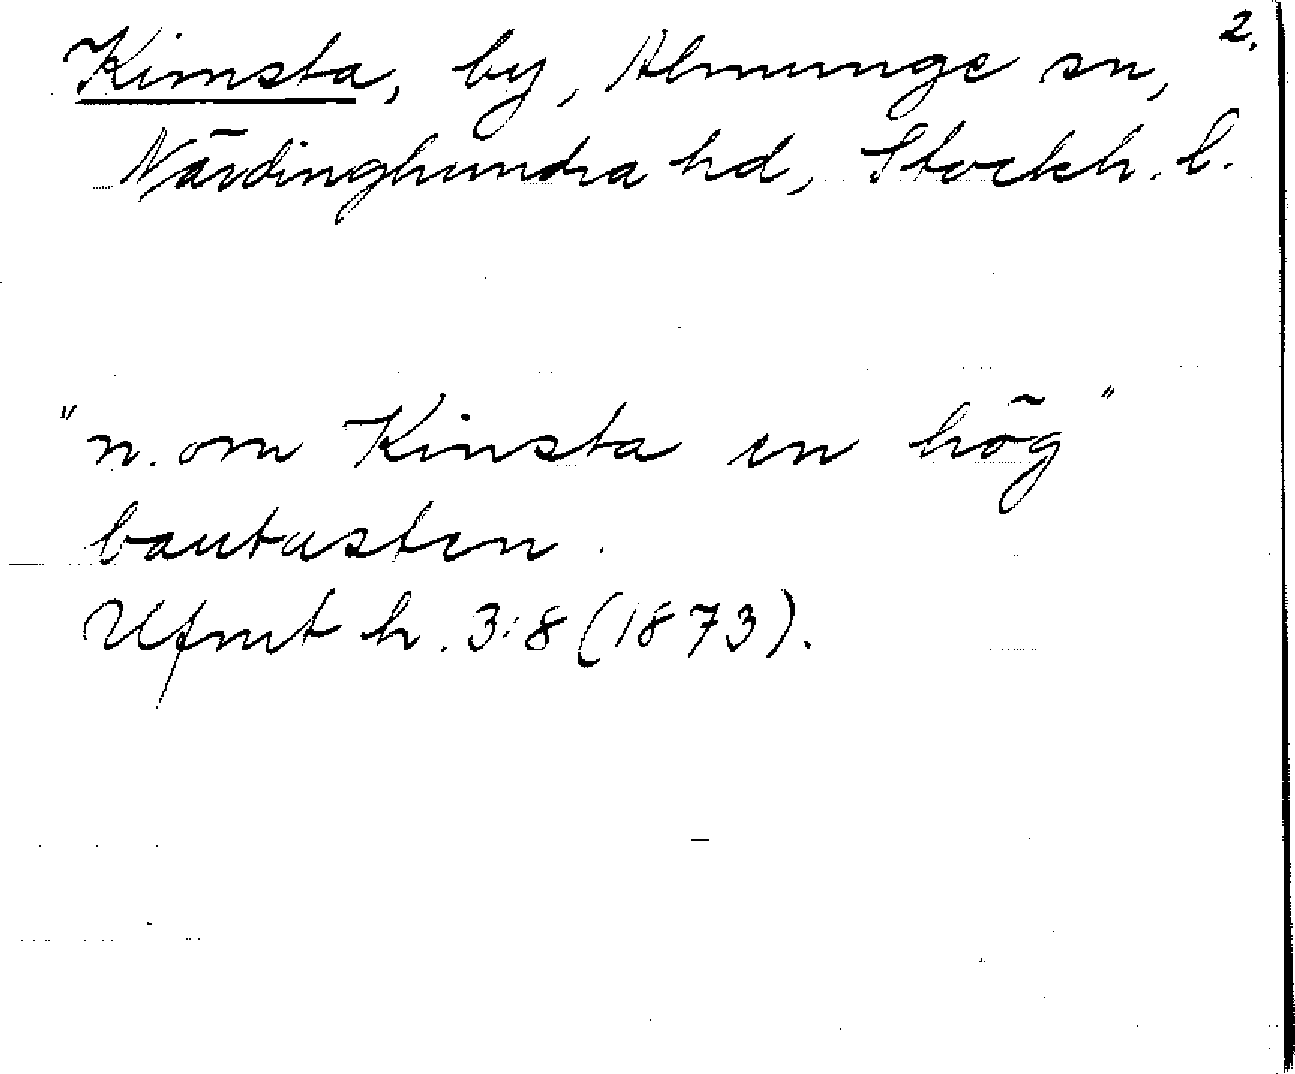 2.
Kimsta, by, Almunge sn,
Närdinghundra hd, Stockh. l.
"n. om Kinsta en hög"
bautasten.
Ufmt h. 3:8 (1873).